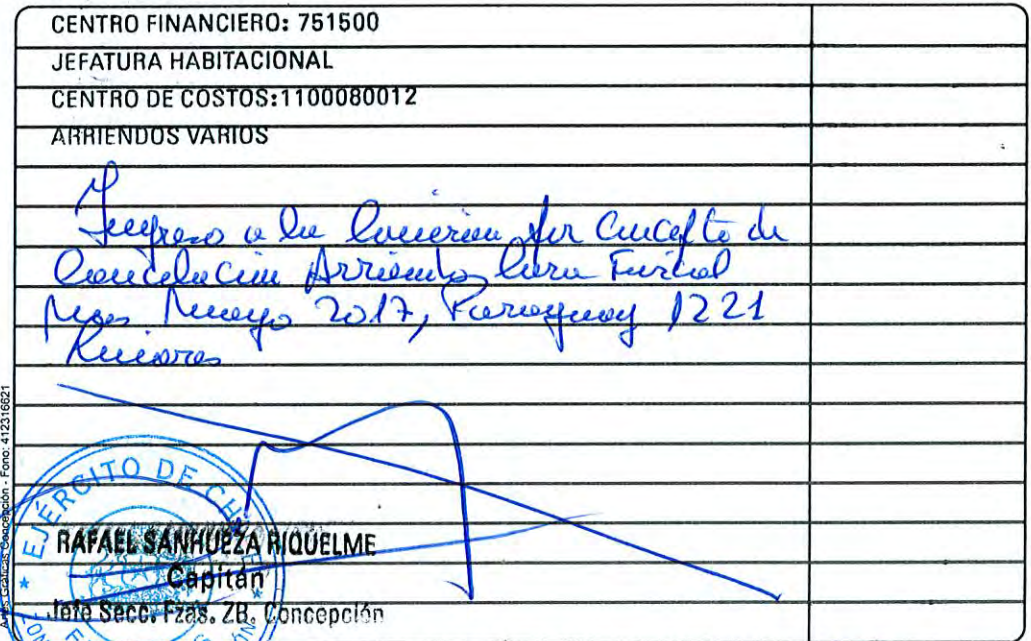 CENTRO FINANCIERO: 751500
JEFATURA HABITACIONAL
CENTRO DE COSTOS:1100080012
ARRIENDOS VARIOS
Ingreso a la por Concepto de
Cancelación Arriendo Fiscal
Mes Mayo 2017, Paraguay 1221
Linares
EJÉRCITO DE CH
RAFAEL SANHUEZA RIQUELME
Capitán
Jefe Secc. Fzas. ZB. Concepción
Artes Gráficas Concepción - Fono: 412316621